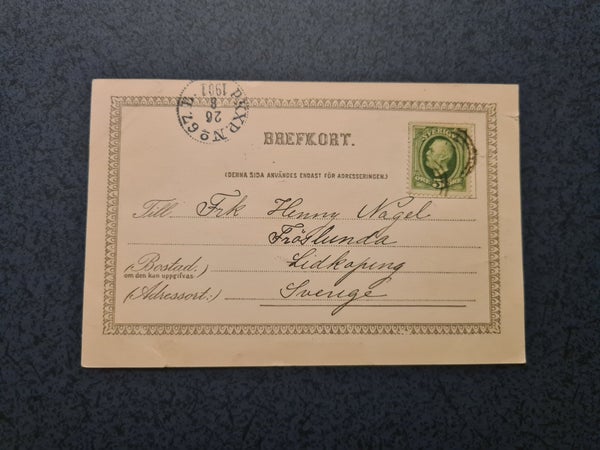 PKXP.No 67. B.
26
8
1901
BREFKORT.
SVERIGE
(DENNA SIDA ANVÄNDES ENDAST FÖR ADRESSERINGEN.)
ÖRE 5
Till Frk Henny Nagel
Fröslunda
(Bostad:) Lidköping
om den kan uppgifvas
(Adressort:) Sverige